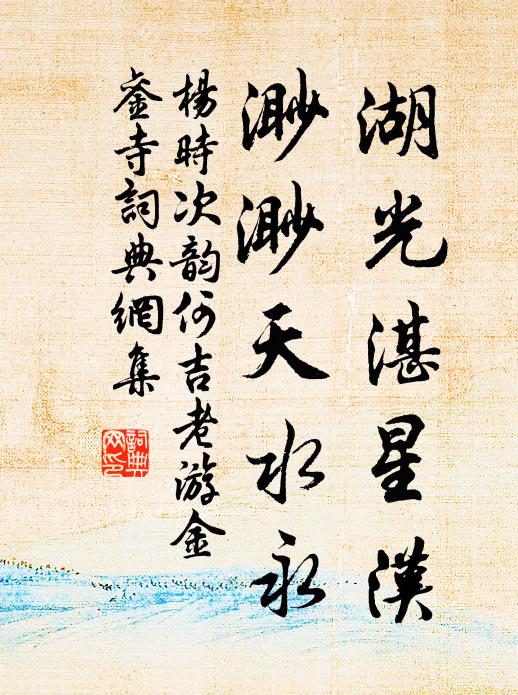 湖光湛星漢
渺渺天水永
楊時次韵何吉老游金
銮寺詞典網集
詞典
网印